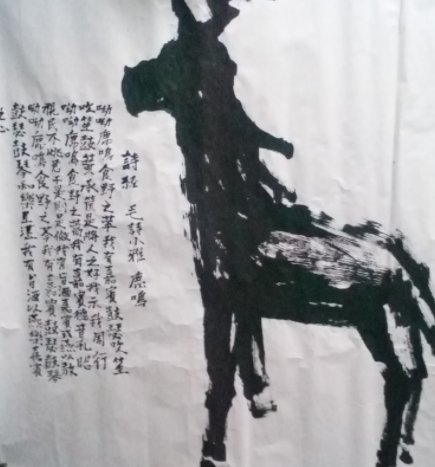 詩経 毛詩小雅 鹿鳴
呦呦鹿鳴食野之苹我有嘉賓鼓瑟吹笙
吹笙鼓簧承筐是將人之好我示我周行
呦呦鹿鳴食野之蒿我有嘉賓德音孔昭
視民不恌君子是則是傚我有旨酒嘉賓式燕以敖
呦呦鹿鳴食野之芩我有嘉賓鼓瑟鼓琴
鼓瑟鼓琴和樂且湛我有旨酒以燕樂嘉賓
之心